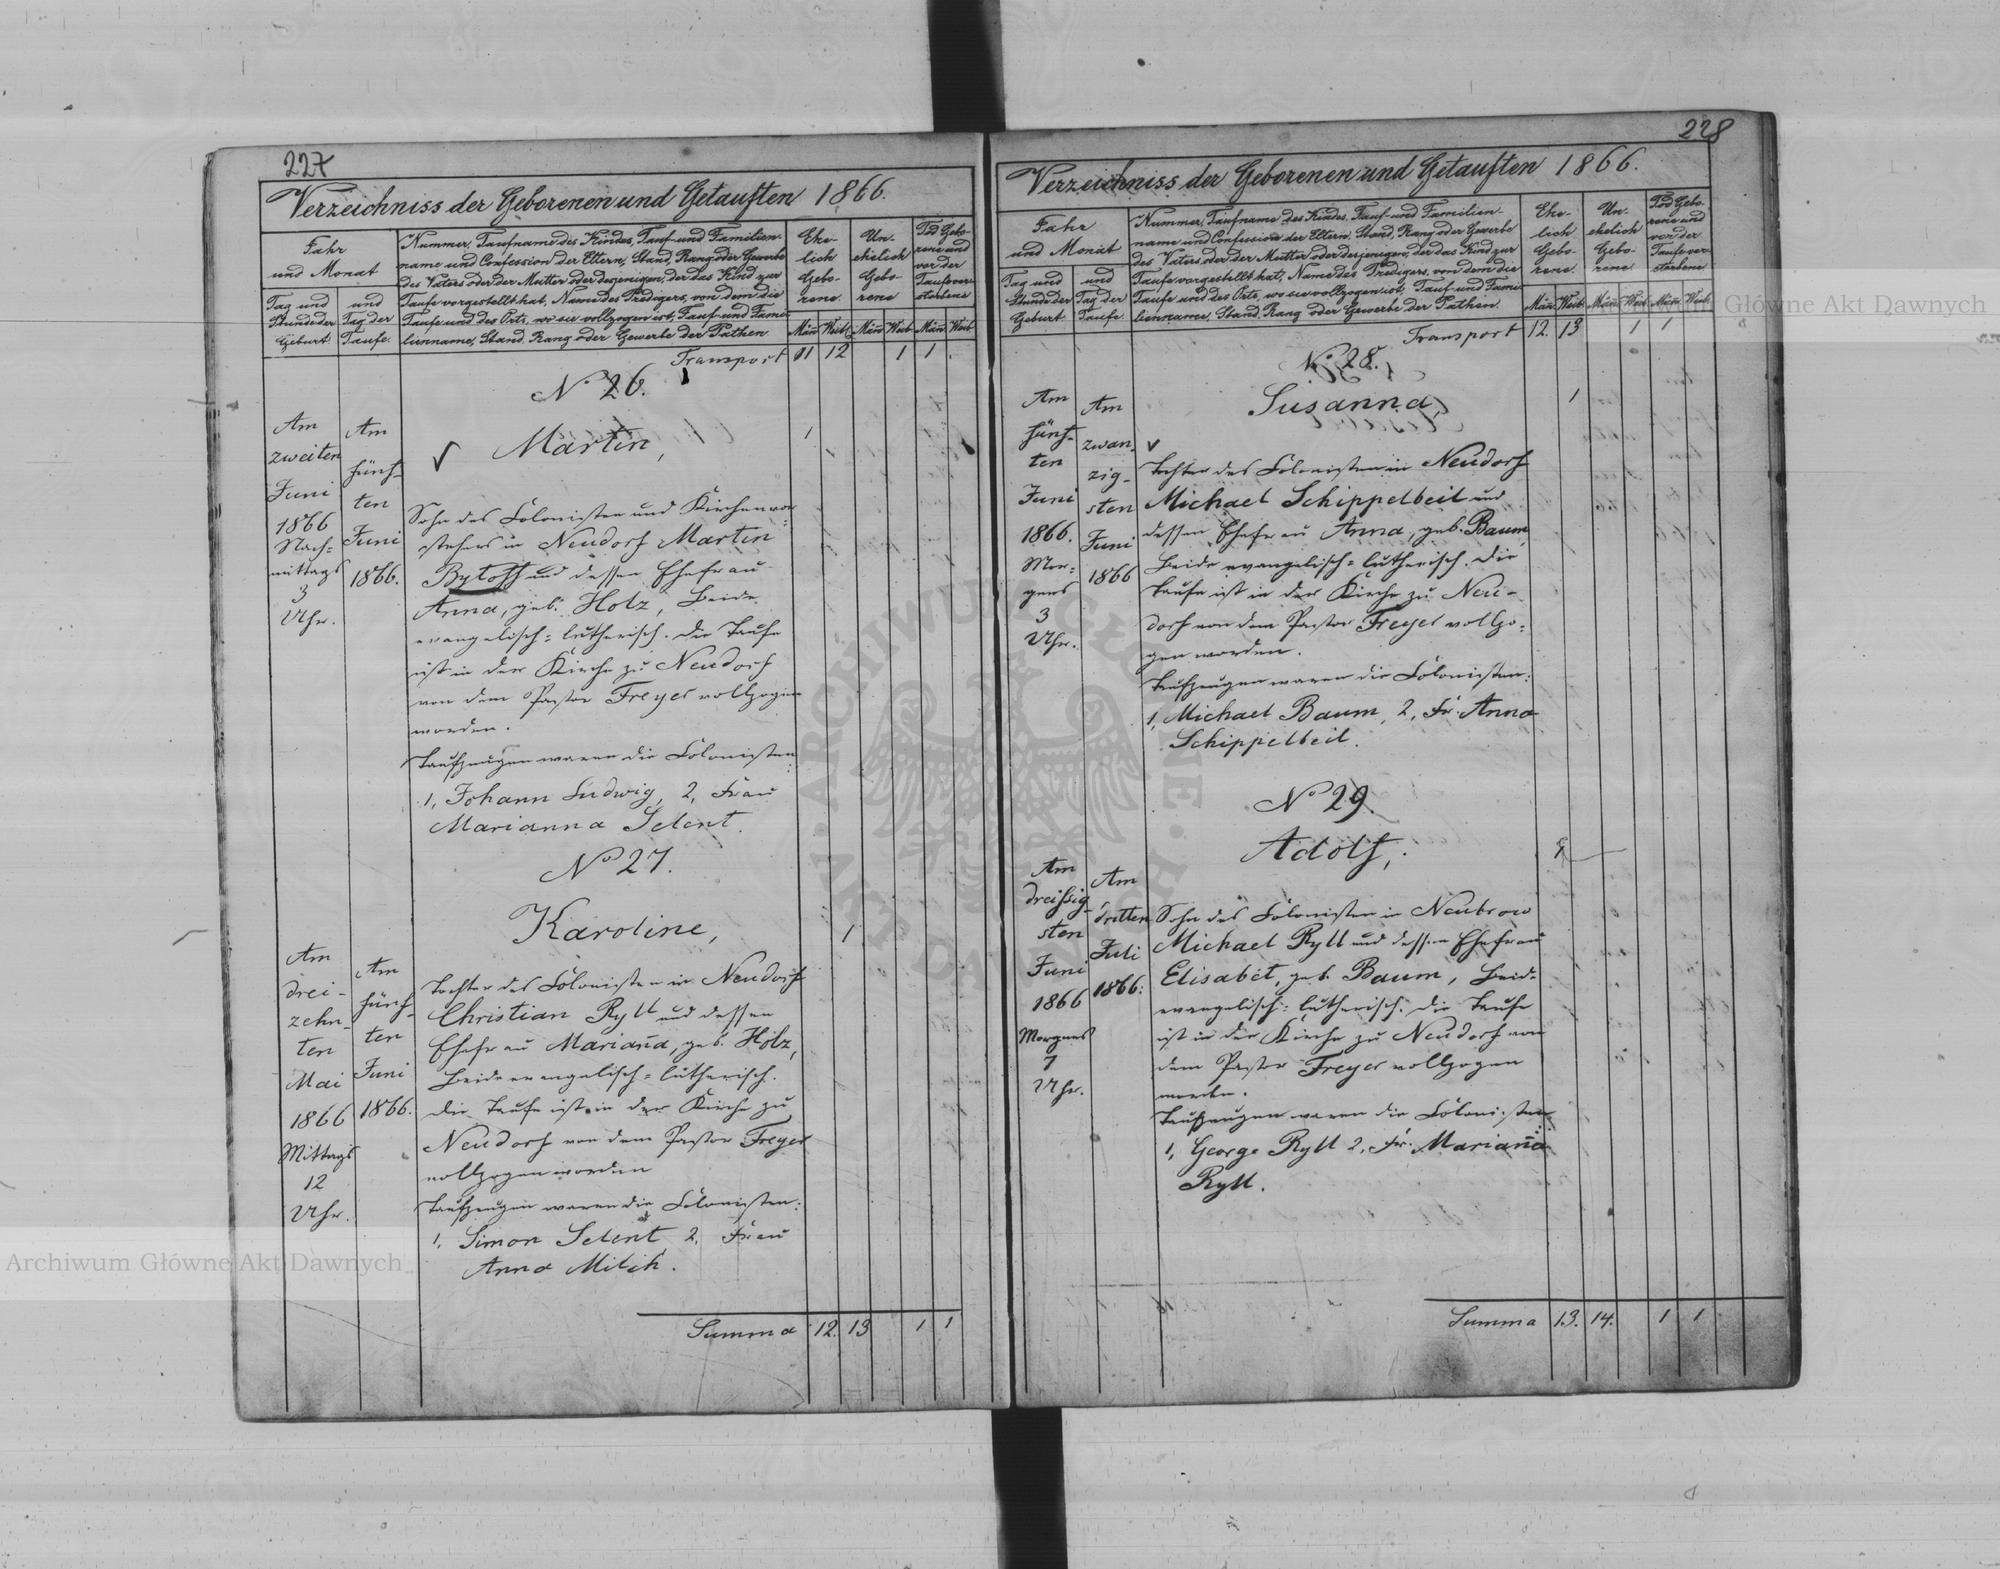 227
Verzeichniss der Geborenen und Getauften 1866.
Jahr
und Monat
Tag und
Stunde der
Geburt.
und
Tag der
Taufe.
Nummer, Taufname des Kindes, Tauf- und Familien-
name und Confession der Eltern, Stand, Rang oder Gewerbe
des Vaters oder der Mutter oder desjenigen, der das Kind zur
Taufe vorgestellt hat, Name des Predigers, von dem die
Taufe und des Orts, wo sie vollzogen ist, Tauf- und Fami-
lienname, Stand, Rang oder Gewerbe der Pathen
Ehe-
lich
Gebo-
rene.
Un-
ehelich
Gebo-
rene
Tod Gebo-
rene und
vor der
Taufe ver-
storbene
Män Weib Män Weib Män Weib
Transport 11 12 1 1
No 26.
Martin,
1
Am
zweiten
Juni
1866
Nach=
mittags
3
Uhr.
Am
fünf-
ten
Juni
1866.
Sohn des Colonisten und Kirchenvor=
stehers in Neudorf Martin
Bytoff und dessen Ehefrau
Anna, geb. Holz, Beide
evangelisch=lutherisch. Die Taufe
ist in der Kirche zu Neudorf
von dem Pastor Freyer vollzogen
worden.
Taufzeugen waren die Colonisten:
1, Johann Ludwig, 2, Frau
Marianna Selent.
No 27.
Karoline,
1
Am
drei-
zehn-
ten
Mai
1866
Mittags
12
Uhr.
Am
fünf-
ten
Juni
1866.
Tochter des Colonisten in Neudorf
Christian Ryll und dessen
Ehefrau Mariaña, geb. Holz,
Beide evangelisch=lutherisch.
Die Taufe ist in der Kirche zu
Neudorf von dem Pastor Freyer
vollzogen worden
Taufzeugen waren die Colonisten:
1, Simon Selent 2, Frau
Anna Milch.
Summa 12. 13 1 1
228
Verzeichniss der Geborenen und Getauften 1866.
Jahr
und Monat
Tag und
Stunde der
Geburt
und
Tag der
Taufe.
Nummer, Taufname des Kindes, Tauf- und Familien-
name und Confession der Eltern, Stand, Rang oder Gewerbe
des Vaters oder der Mutter oder desjenigen, der das Kind zur
Taufe vorgestellt hat, Name des Predigers, von dem die
Taufe und des Orts, wo sie vollzogen ist, Tauf- und Fami-
lienname, Stand, Rang oder Gewerbe der Pathen.
Ehe-
lich
Gebo-
rene.
Un-
ehelich
Gebo-
rene
Tod Gebo-
rene und
vor der
Taufe ver-
storbene.
Män Weib Män Weib Män Weib
Transport 12. 13 1 1
No 28.
Susanna,
1
Am
fünf-
ten
Juni
1866.
Mor=
gens
3
Uhr.
Am
zwan-
zig-
sten
Juni
1866
Tochter des Colonisten in Neudorf
Michael Schippelbeil und
dessen Ehefrau Anna, geb. Baum,
Beide evangelisch=lutherisch. Die
Taufe ist in der Kirche zu Neu-
dorf von dem Pastor Freyer vollzo=
gen worden.
Taufzeugen waren die Colonisten:
1, Michael Baum, 2, Fr. Anna
Schippelbeil.
No 29.
Adolf,
1
Am
dreißig-
sten
Juni
1866
Morgens
7
Uhr.
Am
dritten
Juli
1866.
Sohn des Colonisten in Neubrow
Michael Ryll und dessen Ehefrau
Elisabet, geb. Baum, Beide
evangelisch=lutherisch. Die Taufe
ist in der Kirche zu Neudorf von
dem Pastor Freyer vollzogen
worden.
Taufzeugen waren die Colonisten:
1, George Ryll 2, Fr. Mariaña
Ryll.
Summa 13. 14. 1 1
Archiwum Główne Akt Dawnych
Archiwum Główne Akt Dawnych